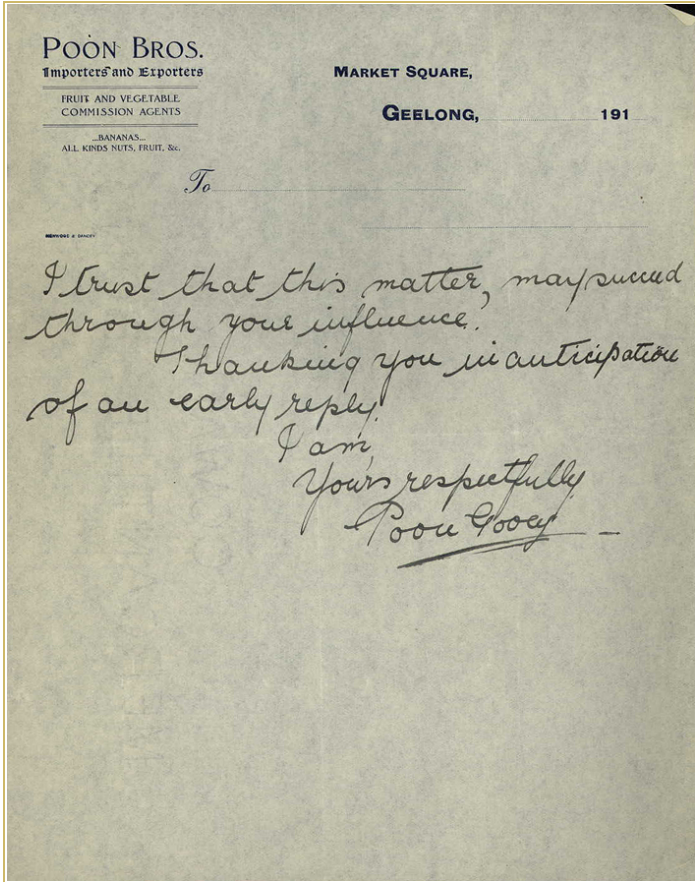 POON BROS.
Importers and Exporters
FRUIT AND VEGETABLE
COMMISSION AGENTS
...BANANAS...
ALL KINDS NUTS, FRUIT, &c.
MARKET SQUARE,
GEELONG, 191
To
I trust that this matter, may succeed
through your influence.
Thanking you in anticipation
of an early reply.
I am,
Yours respectfully
Poon Gooey